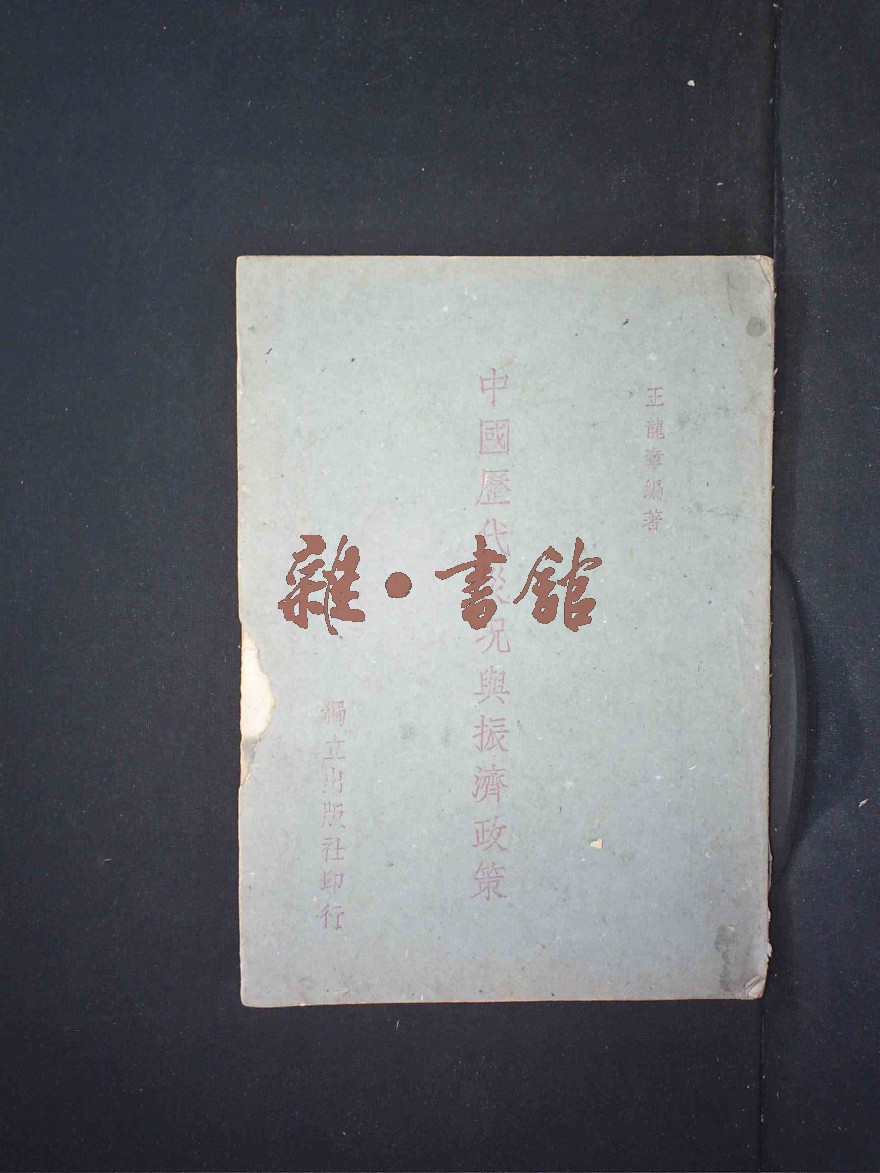 王龍章編著
中國歷代災況與振濟政策
獨立出版社印行
雜•書館